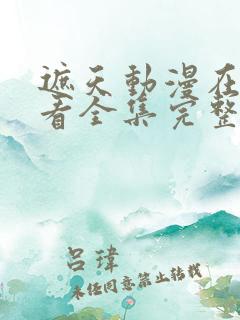 遮天動漫在
看全集完整
呂瑋
未經同意禁止轉載